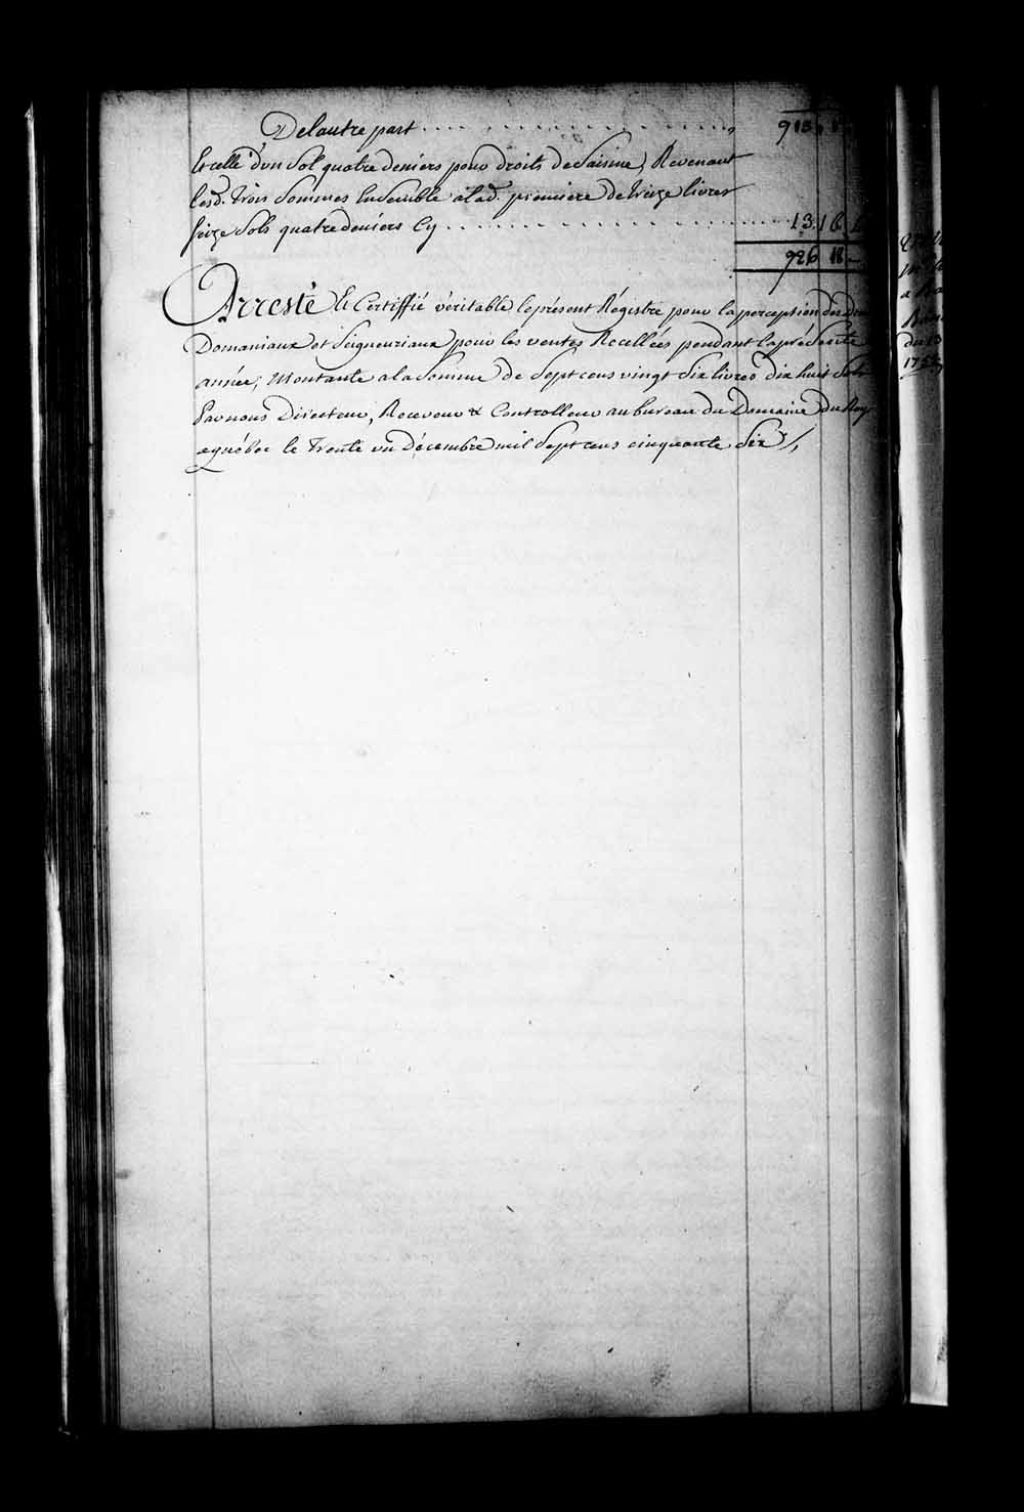 De lautre part ........................, 913. 1
Et celle d'un Sol quatre deniers pour droits de Saisine, Revenant
lesd. trois Sommes Ensemble a lad. premiere de treize livres
Seize Sols quatre deniers Cy .................... 13. 16.
926 18 -
Arresté Et Certiffié véritable le présent Régistre pour la perception des
Domaniaux et Seigneuriaux pour les ventes Recellées pendant la présente
année, Montante a la Somme de Sept cens vingt Six livres dix huit Sols
Par nous Directeur, Receveur & Controlleur au bureau du Domaine du Roy
a québoc le Trente un Décembre mil Sept cens cinquante Six /.
175